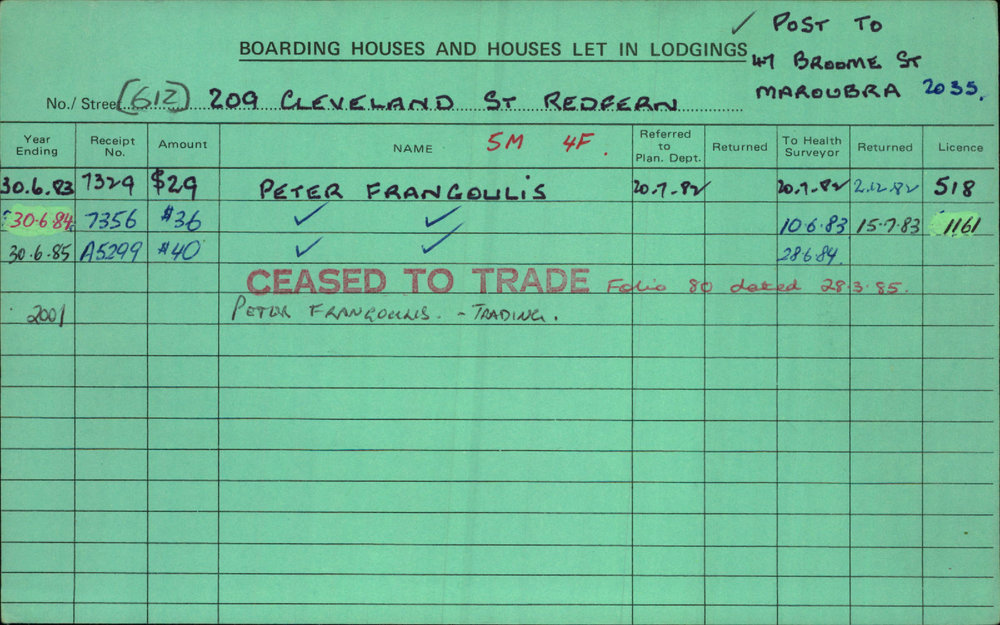 ✓ POST TO
BOARDING HOUSES AND HOUSES LET IN LODGINGS
47 BROOME ST
MAROUBRA 2035.
No./ Street (612) 209 CLEVELAND ST REDFERN
Year Ending Receipt No. Amount NAME 5M 4F. Referred to Plan. Dept. Returned To Health Surveyor Returned Licence
30.6.83 7329 $29 PETER FRANGOULIS 20.7.82 20.7.82 2.12.82 518
30.6.84 7356 $36 ✓ ✓ 10.6.83 15.7.83 1161
30.6.85 A5299 $40 ✓ ✓ 28.6.84.
CEASED TO TRADE Folio 80 dated 28.3.85.
2001 PETER FRANGOULIS. - TRADING.